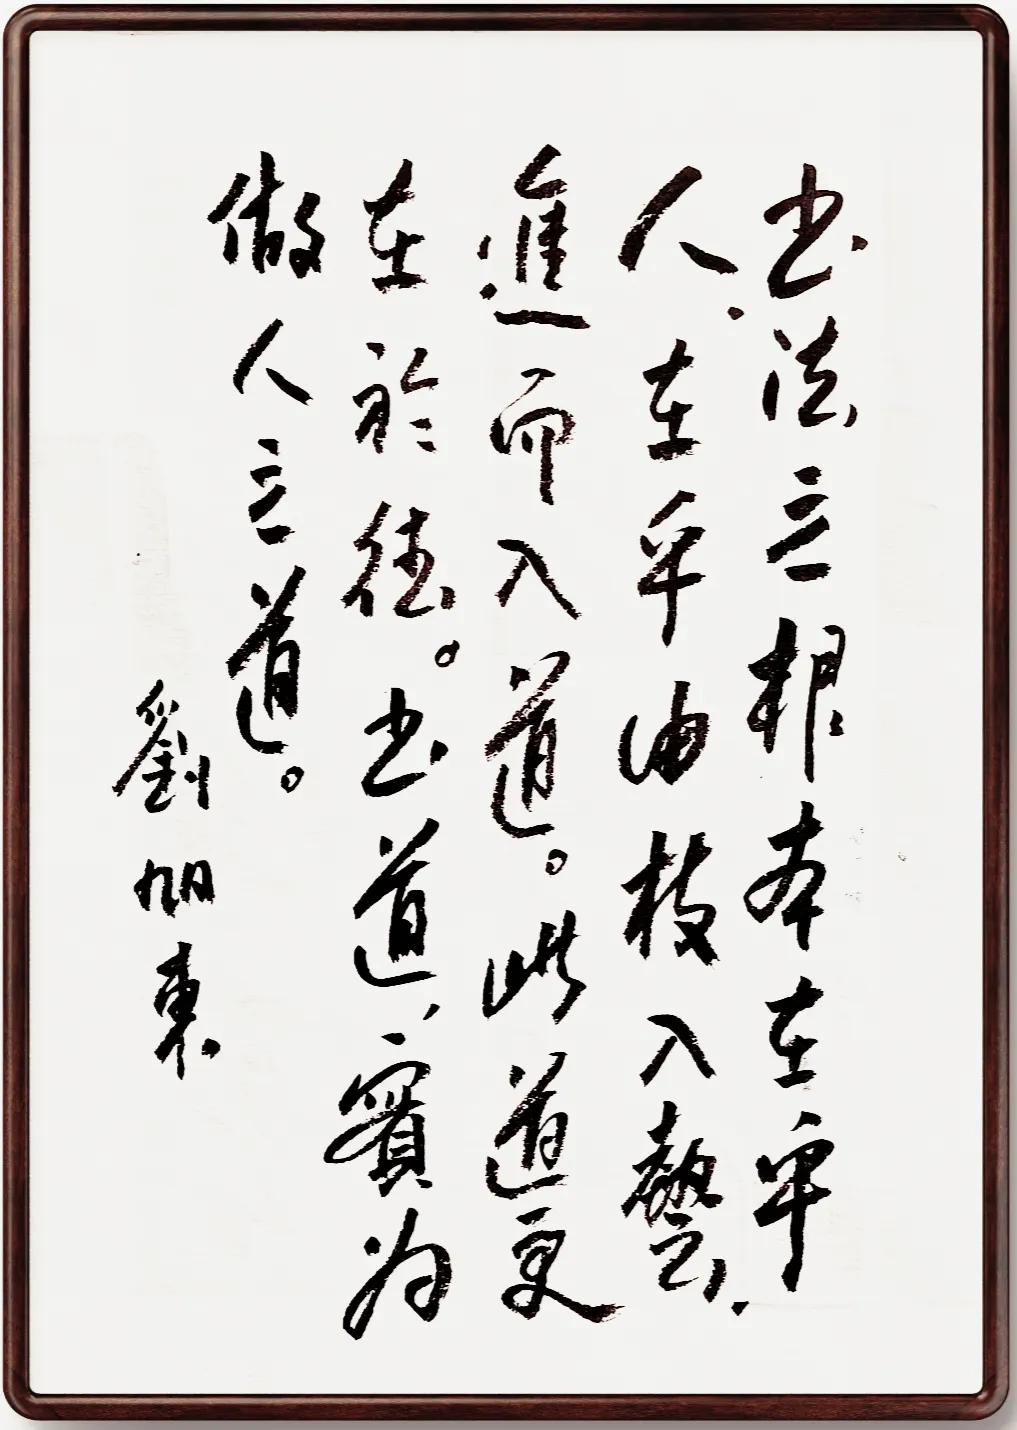 书法立根本在乎
人、在乎由技入藝、
進而入道。此道更
在於德。书道、實为
做人立道。
劉旭東